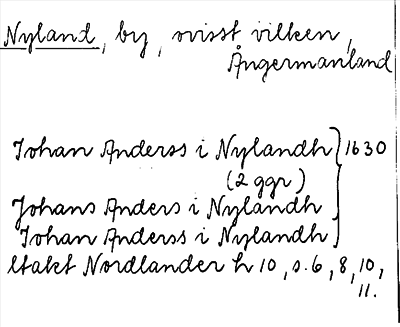 Nyland, by, ovisst vilken,
Ångermanland
Johan Anderss i Nylandh } 1630
(2 ggr)
Johans Anders i Nylandh
Johan Anders i Nylandh
ltakt Nordlander h 10, s. 6, 8, 10,
11.